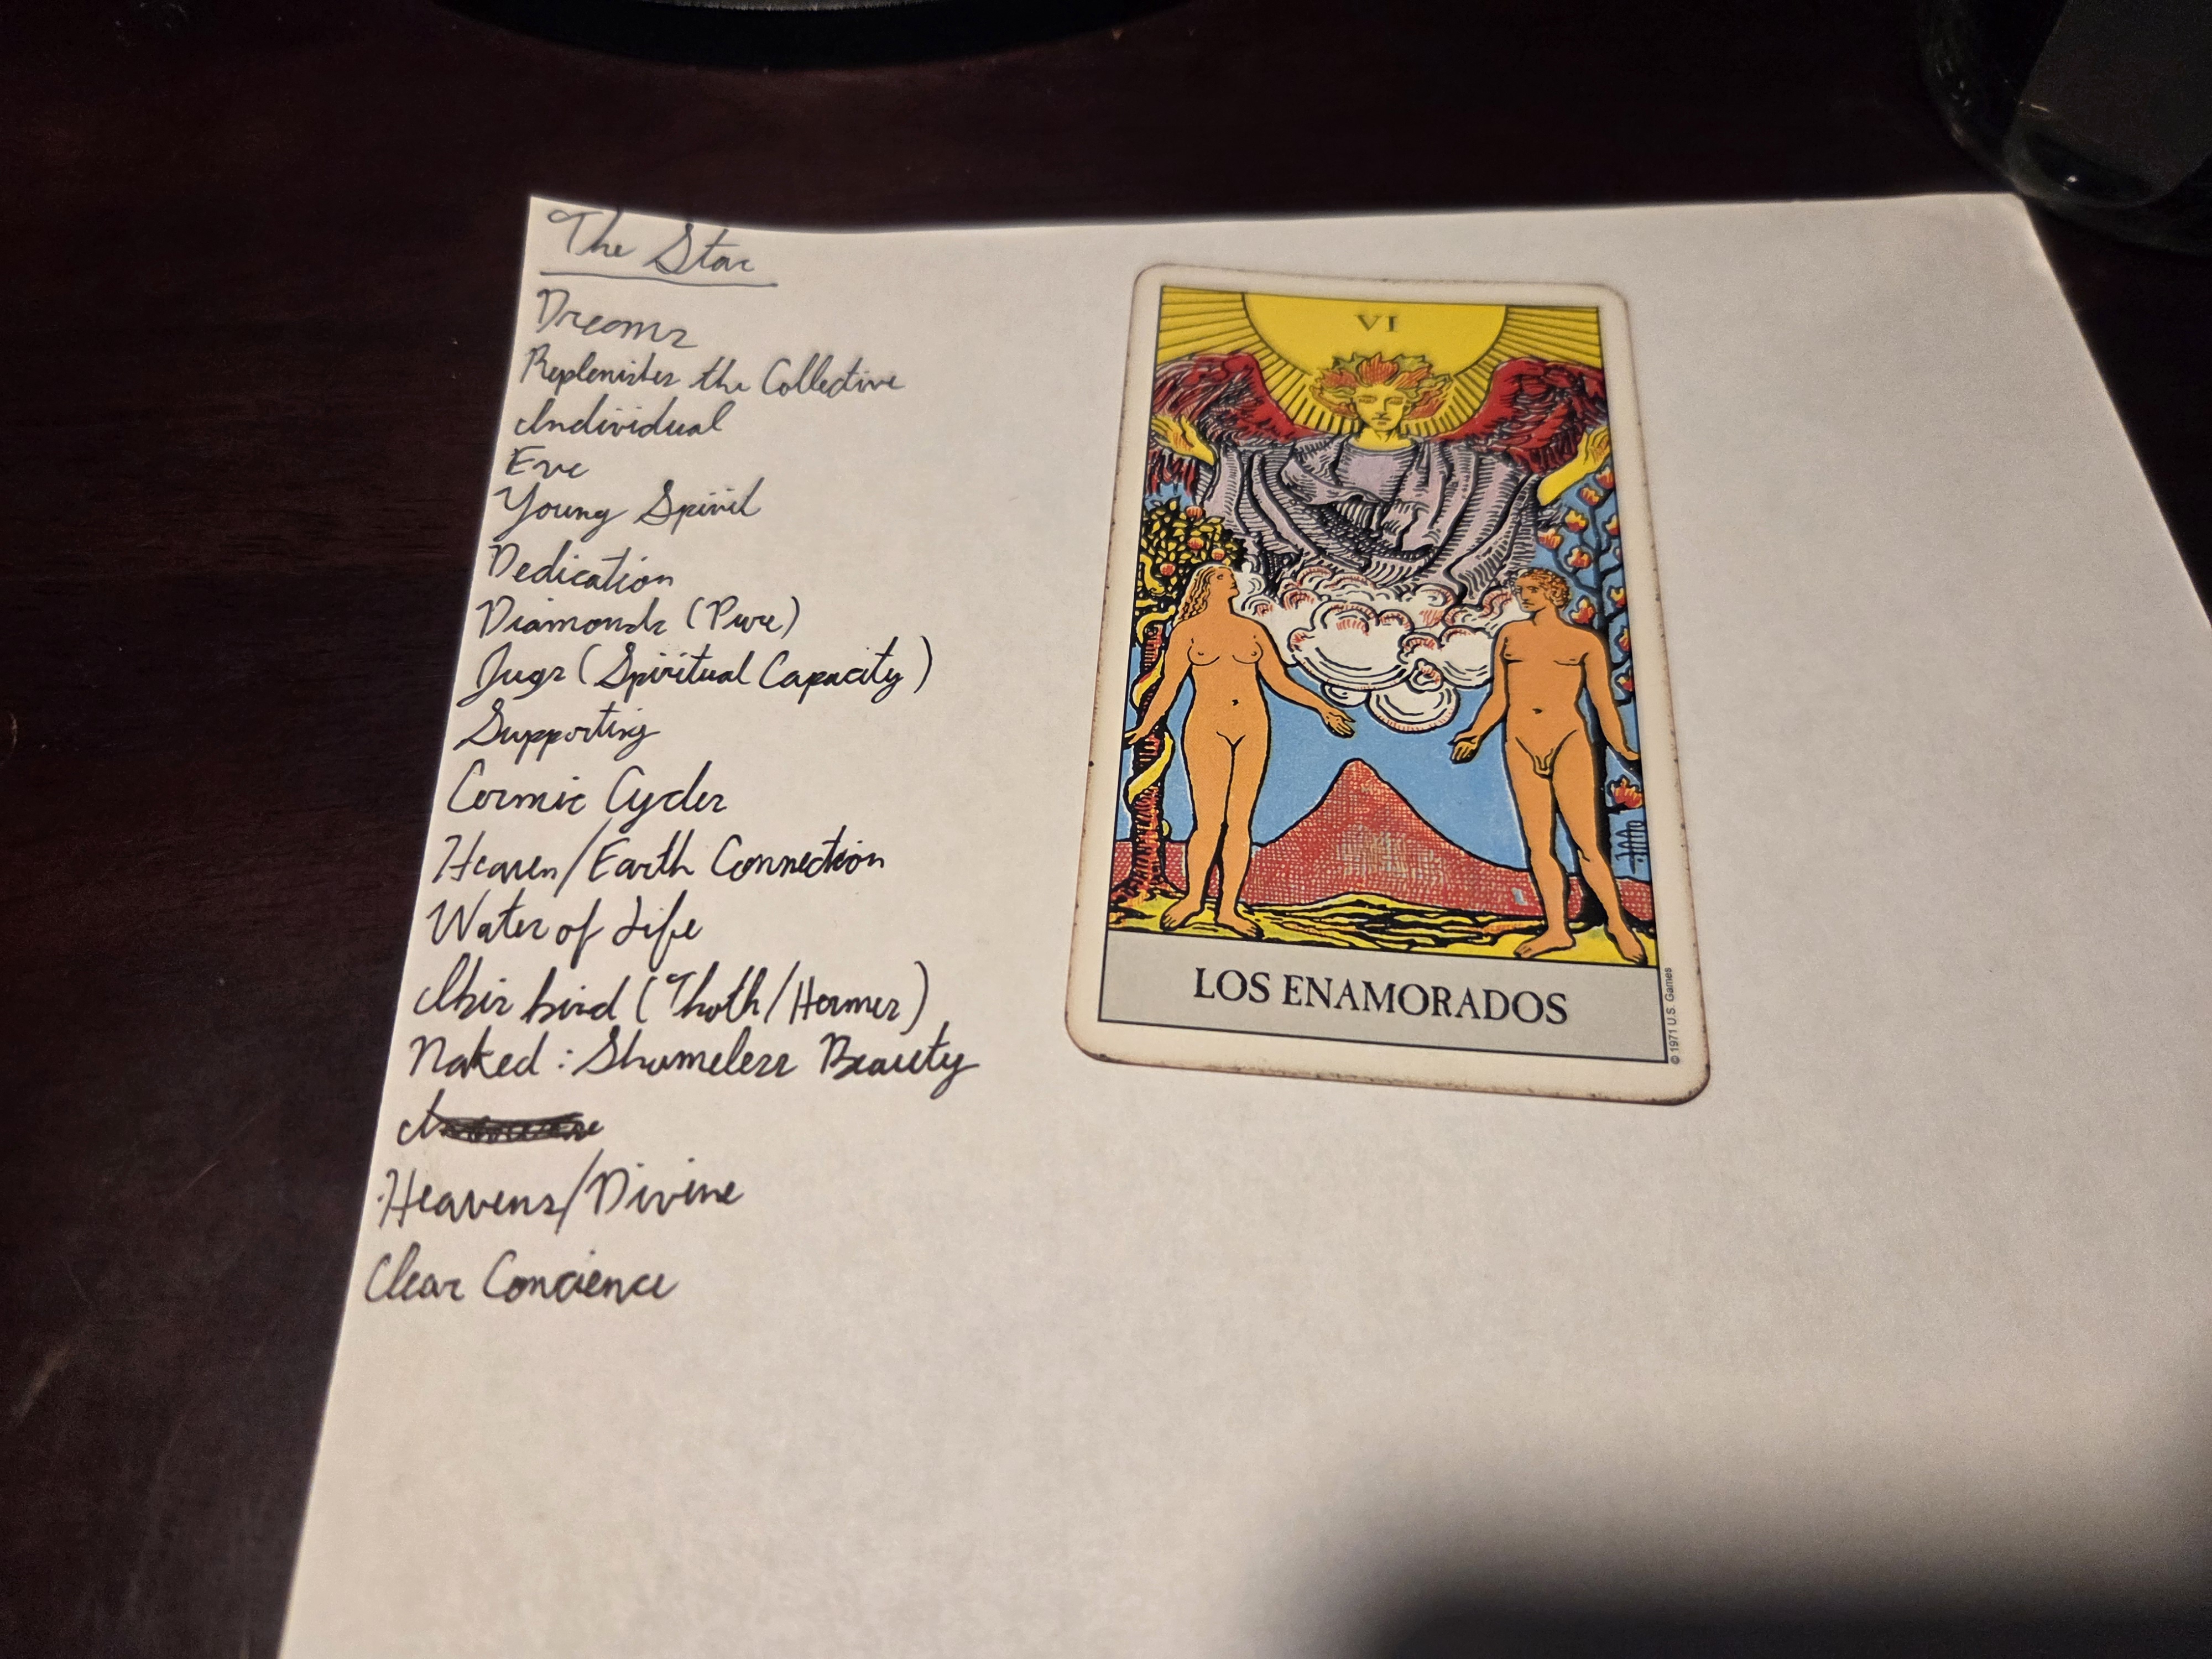 The Star
Dreams
Replenishes the Collective
Individual
Eve
Young Spirit
Dedication
Diamonds (Pure)
Jugs (Spiritual Capacity)
Supporting
Cosmic Cycles
Heaven/Earth Connection
Water of Life
Ibis bird (Thoth/Hermes)
Naked: Shameless Beauty
Heavens/Divine
Clear Concience
VI
LOS ENAMORADOS
© 1971 U.S. Games